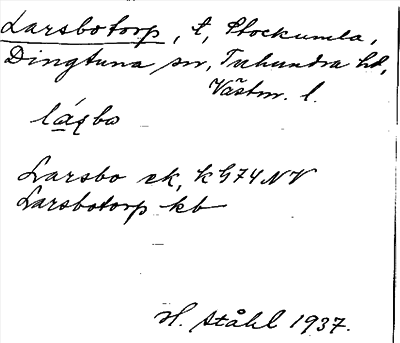 Larsbotorp, t, Stockumla,
Dingtuna sn, Tuhundra hd,
Västm. l.
lásbo
Larsbo ek, kb 74 NV
Larsbotorp kb
H. Ståhl 1937.